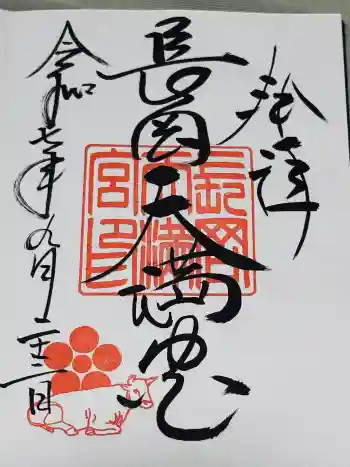 奉拝
長岡天満宮
長岡
天満
宮印
令和七年九月二十二日